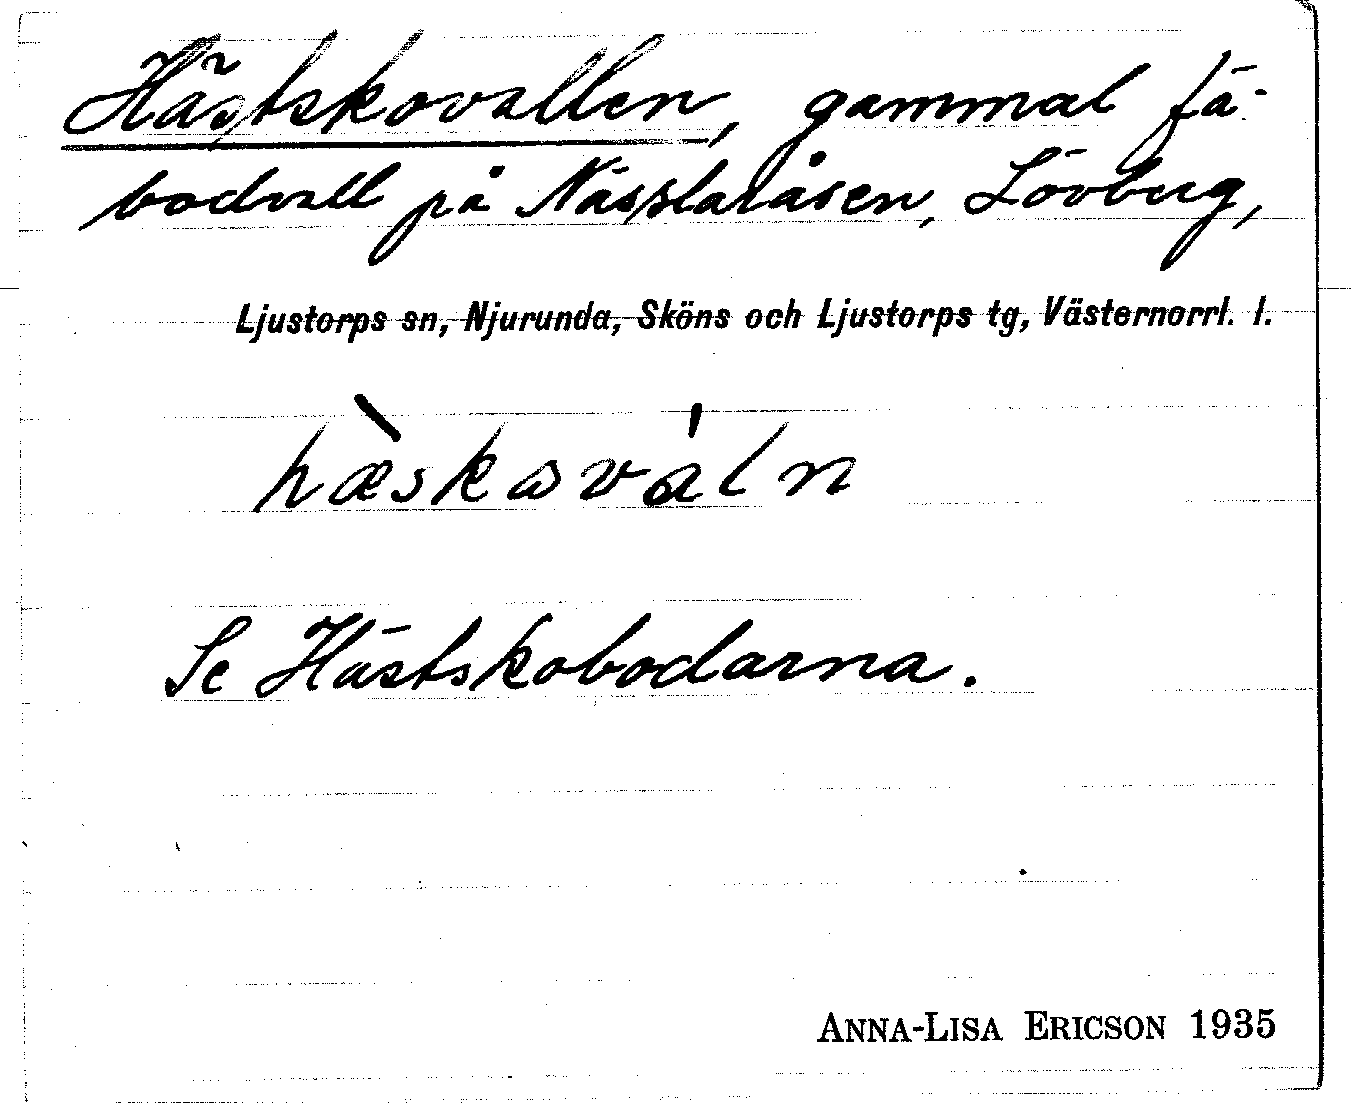 Hästskovallen, gammal fä-
bodvall på Nässlaråsen, Lövberg,
Ljustorps sn, Njurunda, Sköns och Ljustorps tg, Västernorrl. l.
Se Hästskobodarna.
ANNA-LISA ERICSON 1935